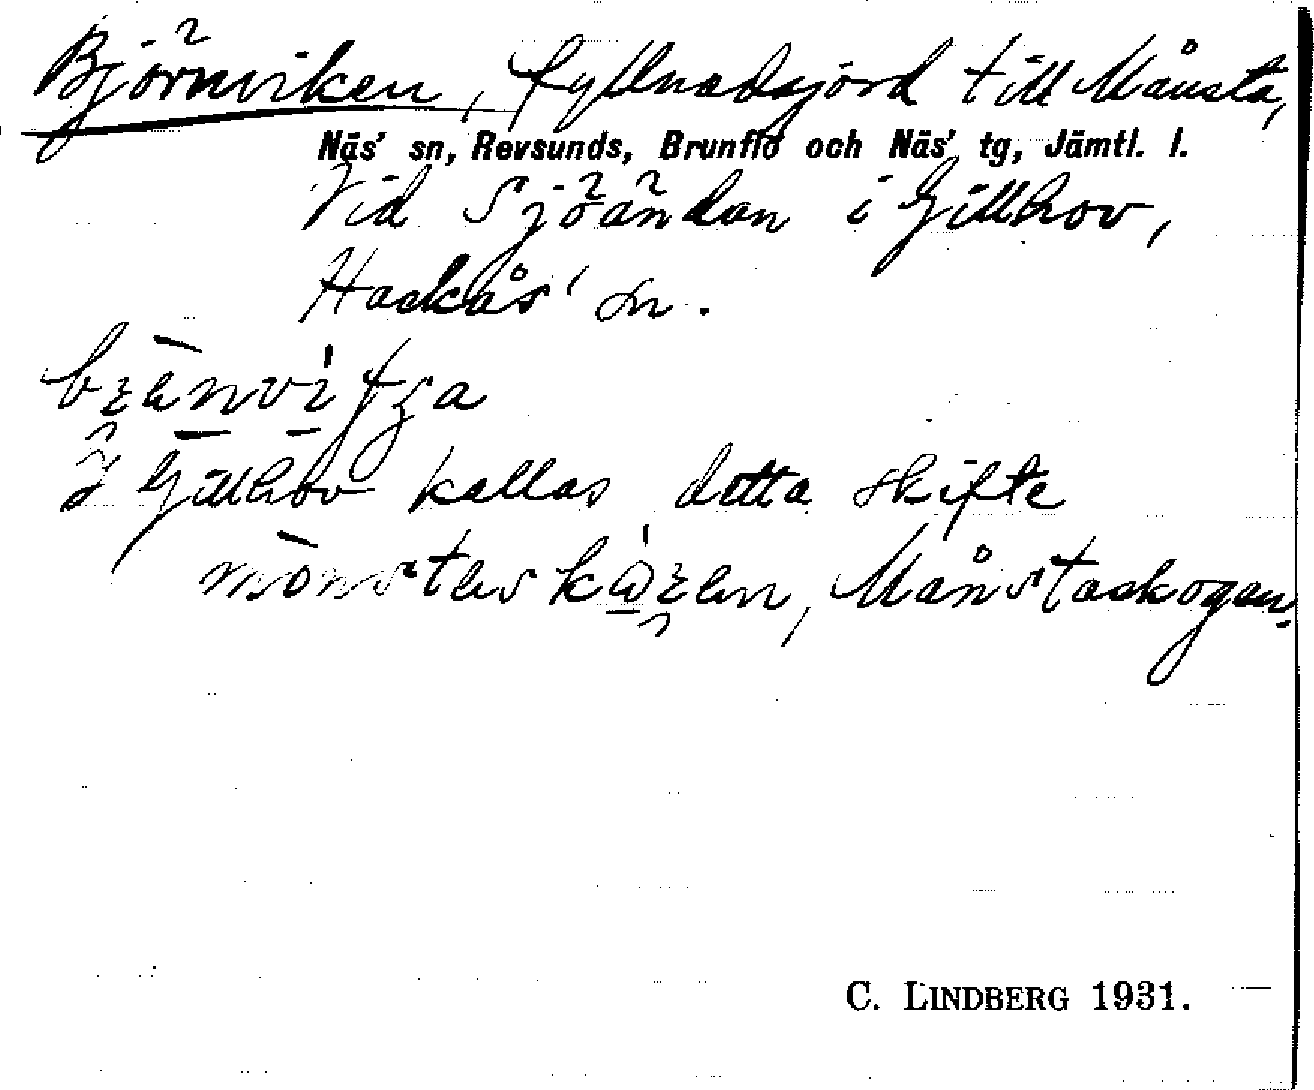 Björnviken, fyllnadsjord till Månsta,
Näs' sn, Revsunds, Brunflo och Näs' tg, Jämtl. l.
Vid Sjöändan i Gillhov,
Hackås' sn.
I Gillhov kallas detta skifte
Månstaskogen.
C. LINDBERG 1931.